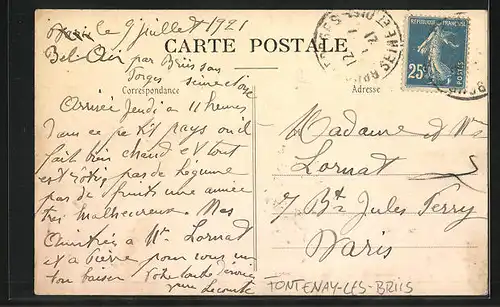 le 9 juillet 1921
Bel-Air par Briis sous
Forges Seine et Oise
CARTE POSTALE
Correspondance
Adresse
Arrivée Jeudi a 11 heures
dans ce pays où il
fait bien chaud et tout
est rôti, pas de légume
pas de fruits une année
très malheureuse. Mes
Amitiés à Mr. Lornat
et a Pierre pour vous un
bon baiser Votre toute dévouée
Lecomte
25c
POSTES
SEINE ET OISE
Madame et Mr
Lornat
7 Bd Jules Ferry
Paris
FONTENAY-LES-BRIIS